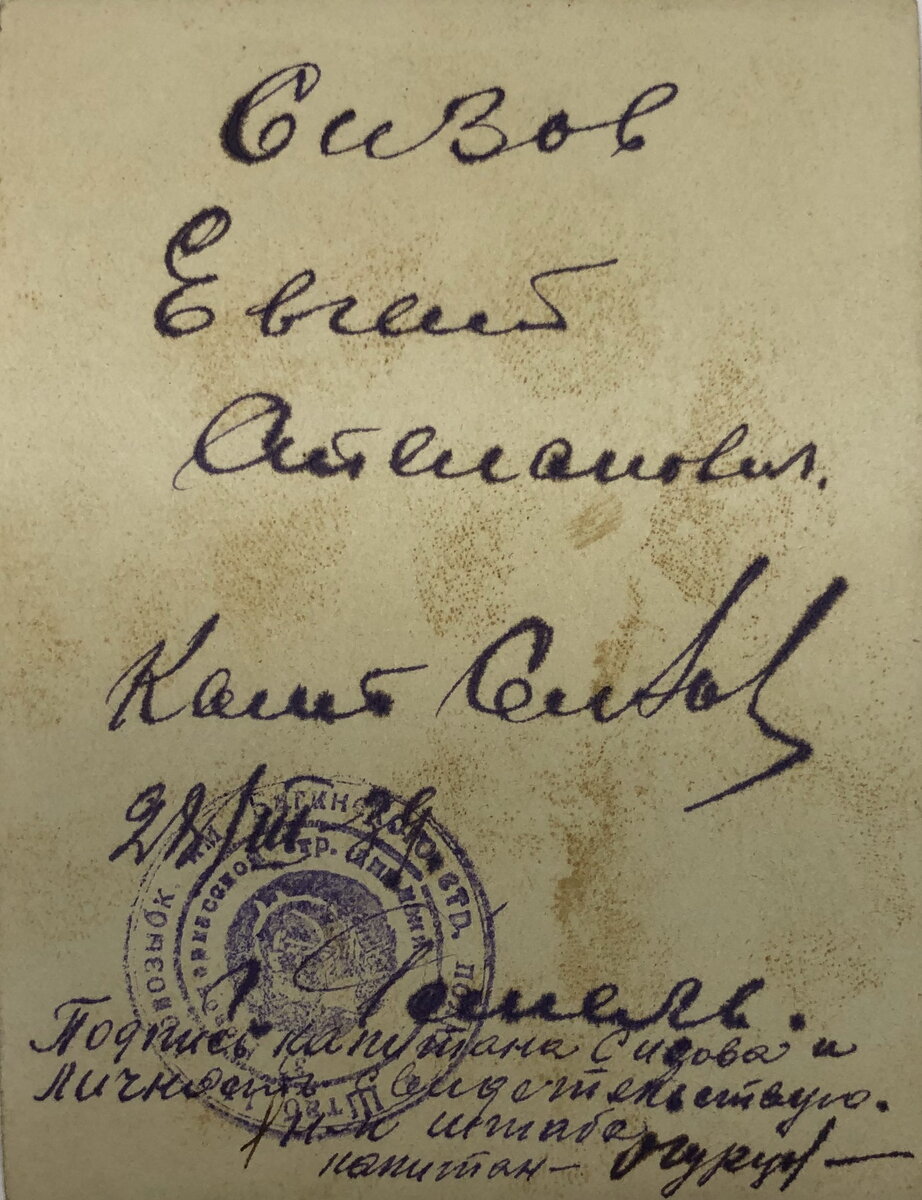 Сизов
Евгений
Степанович.
Капит Сизов
28/III-39
г. Гомель.
Подпись капитана Сизова и
личность свидетельствую.
Н-к штаба
капитан-